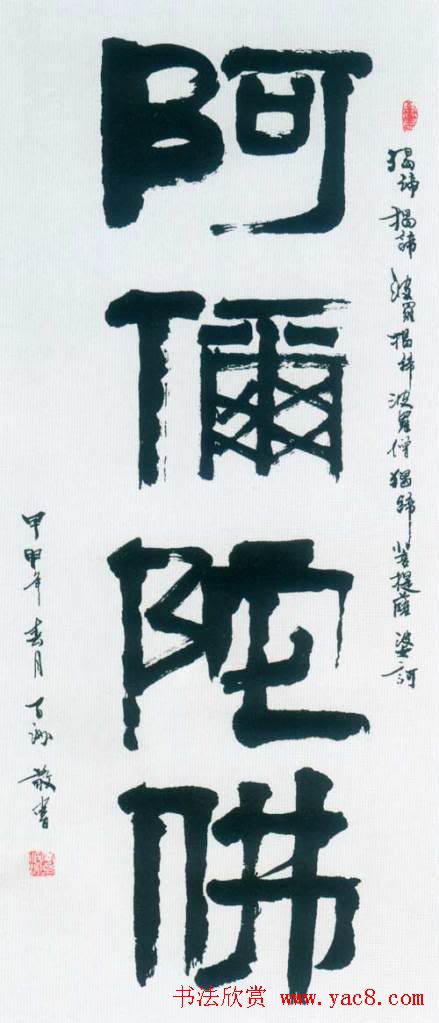 揭諦揭諦波羅揭諦波羅僧揭諦菩提薩婆訶
阿儞陀佛
甲申年春月 敬書
书法欣赏 www.yac8.com